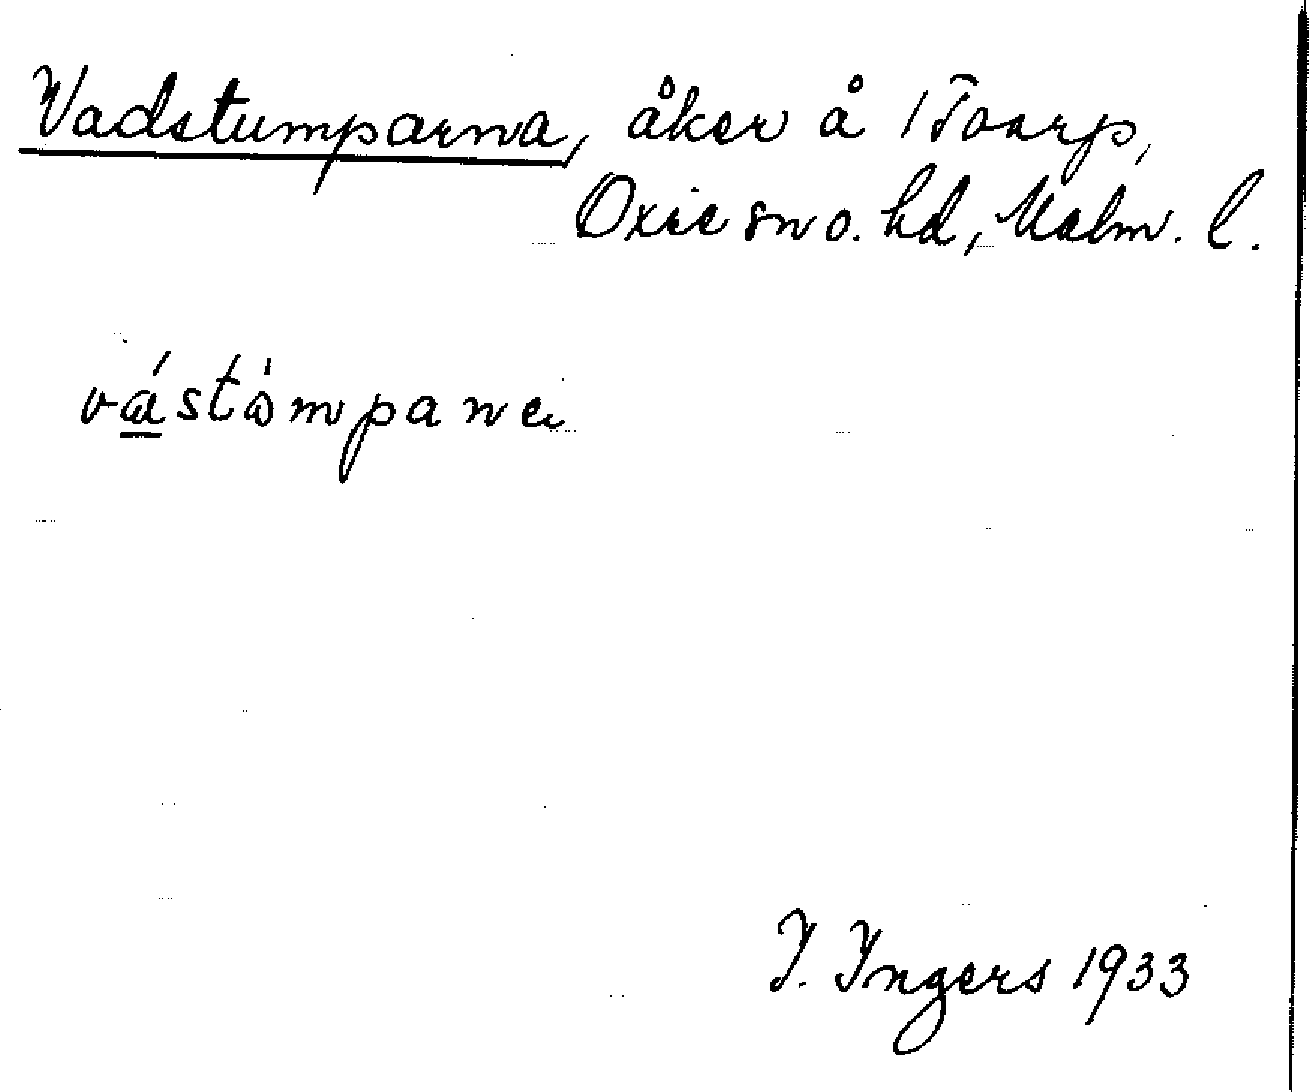 Vadstumparna, åker å 1 Toarp,
Oxie sn o. hd, Malm. l.
vástòmpana
I. Ingers 1933